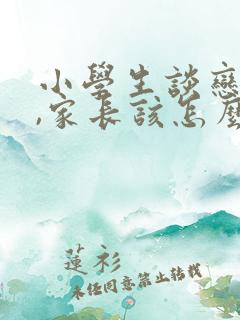 小學生談戀
,家長該怎麼
蓮衫
未經同意禁止轉載